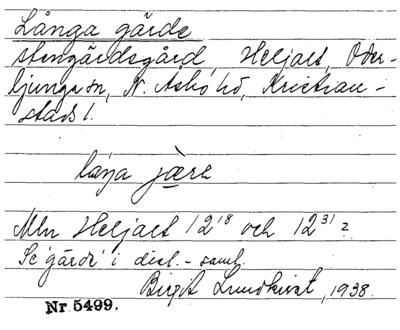 Långa gärde
stengärdsgård, Heljaet, Oder-
ljunga sn, N. Åsbo hd, Kristian-
stads l.
låŋa jære
Mln Heljaet 12¹⁸ och 12³¹ 2
Se 'gärde' i dial.-saml.
Birgit Lundkvist, 1938.
Nr. 5499.